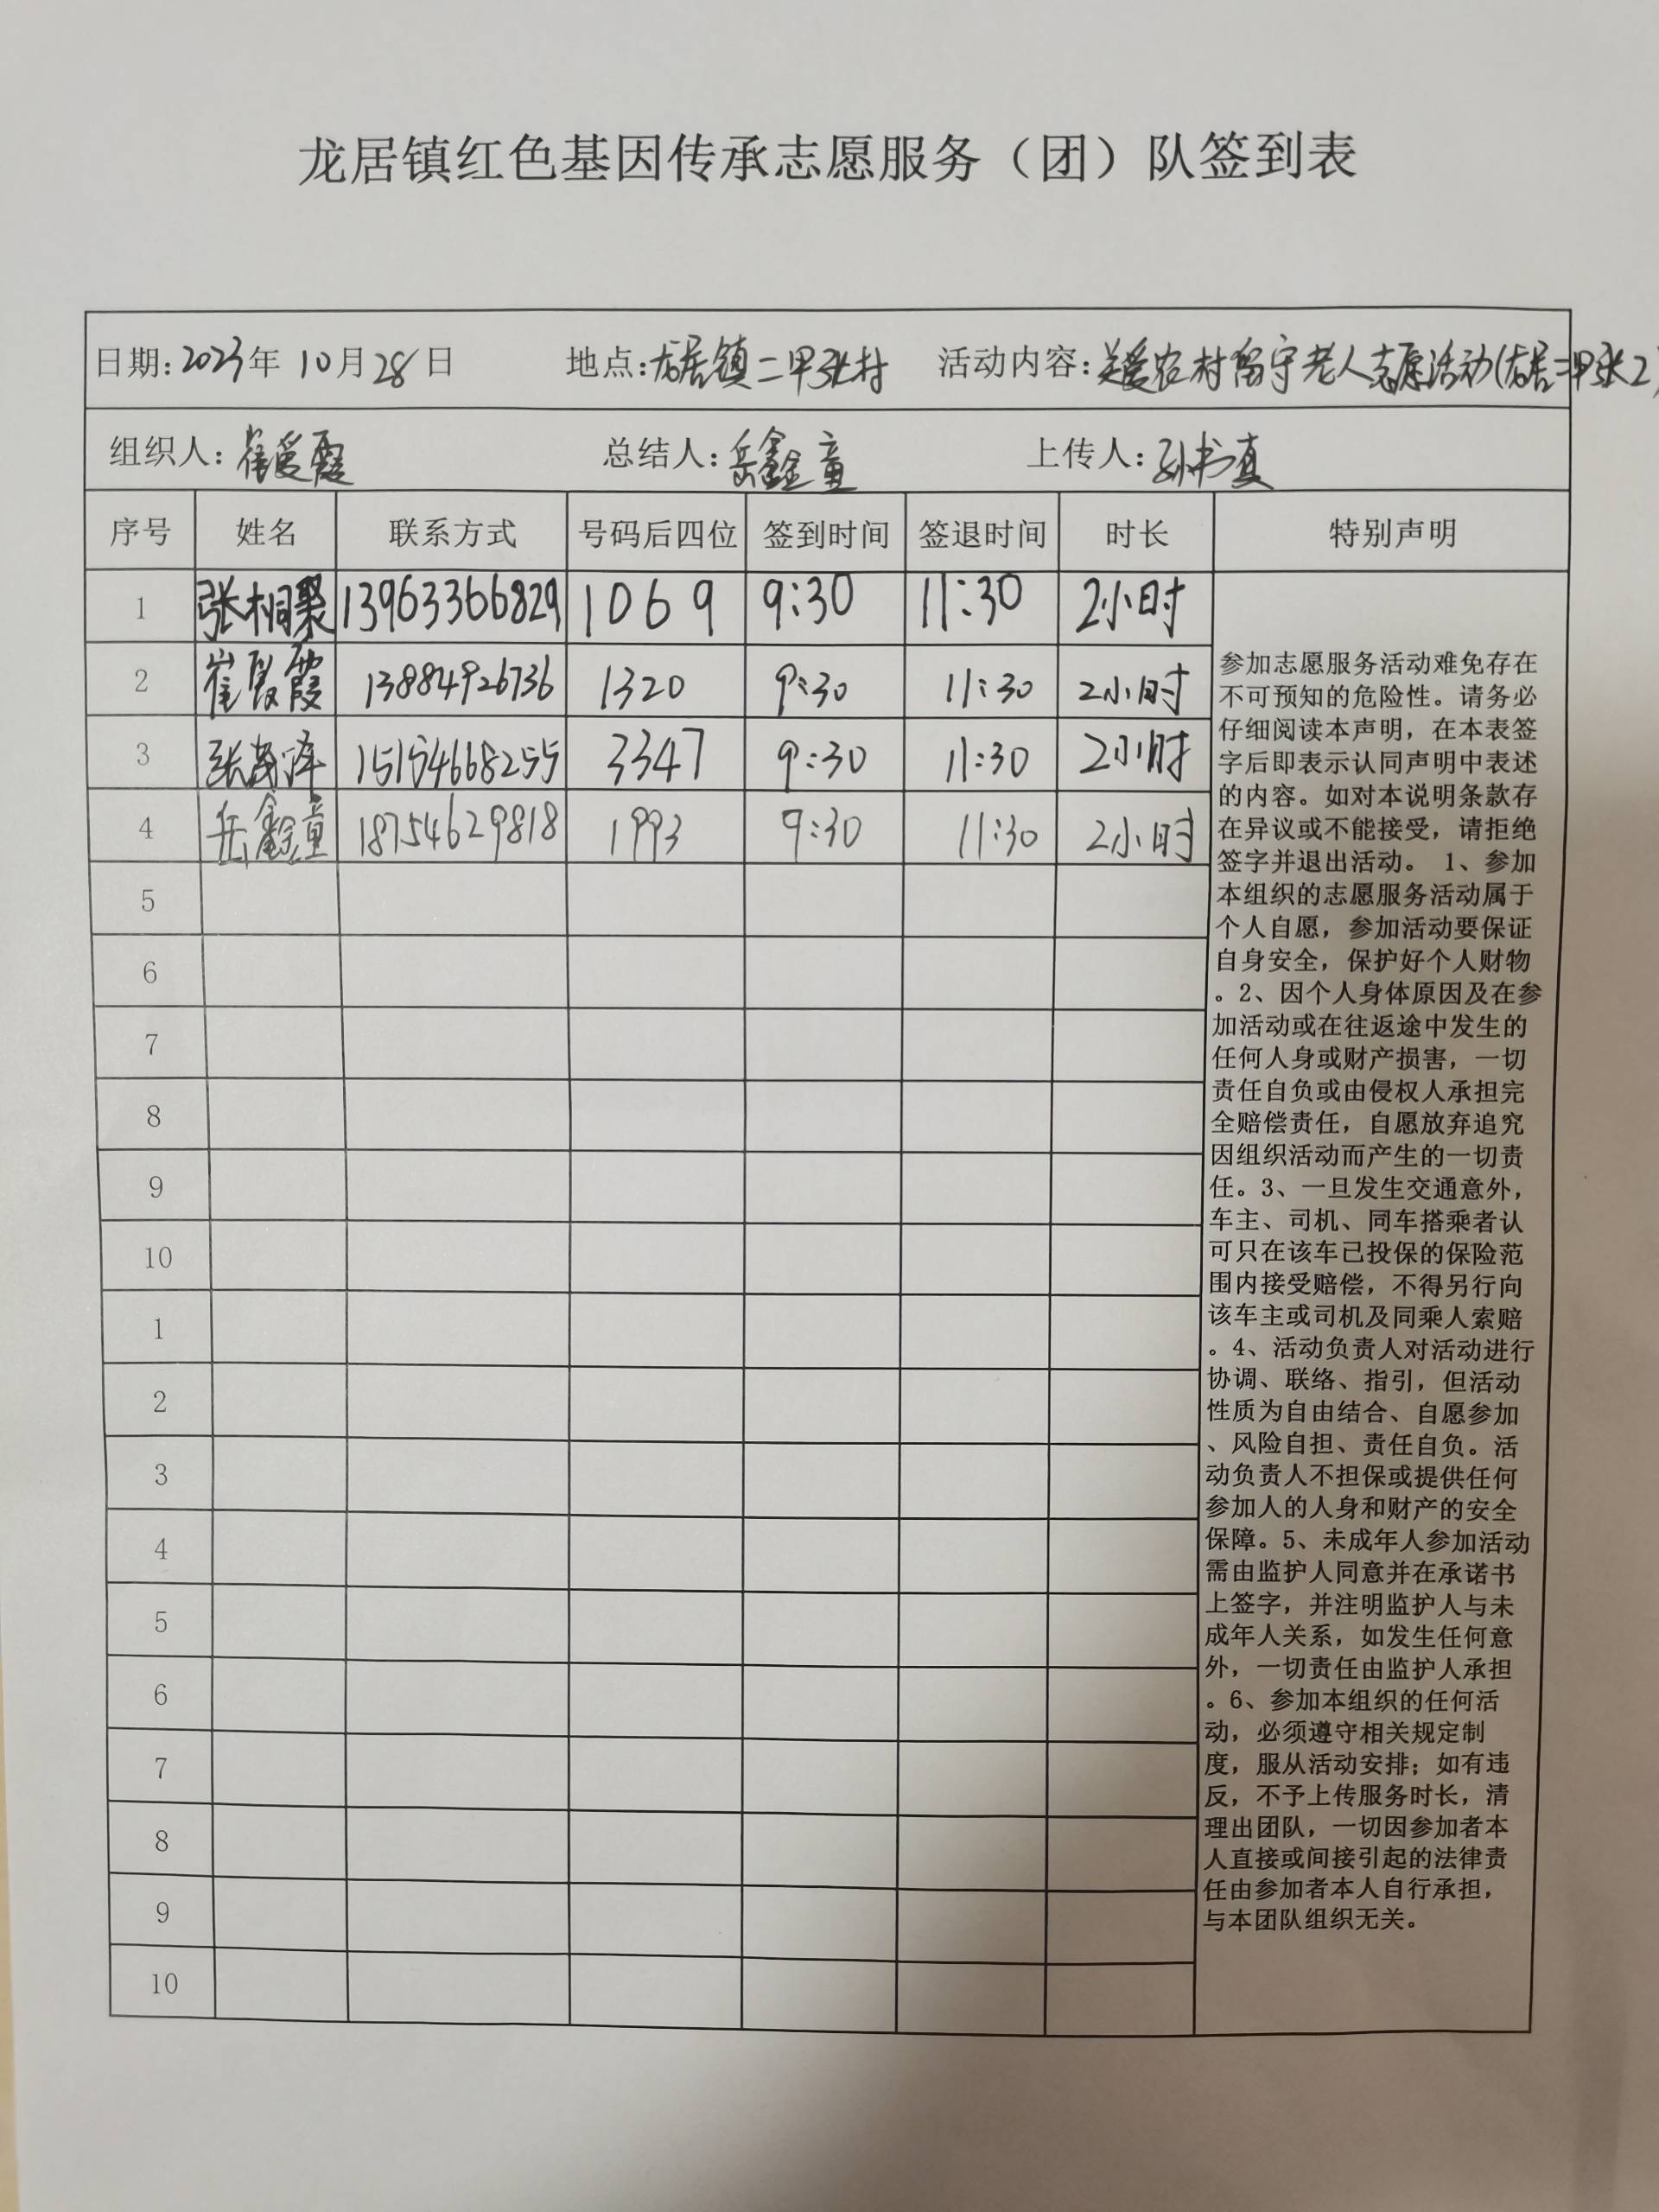 龙居镇红色基因传承志愿服务（团）队签到表
日期：2023年 10月28日 地点：龙居镇二甲张村 活动内容：关爱农村留守老人志愿活动(龙居二甲张2)
组织人：崔爱霞 总结人：岳鑫童 上传人：孙书真
序号 姓名 联系方式 号码后四位 签到时间 签退时间 时长 特别声明
1 张桐聚 13963366829 1069 9:30 11:30 2小时
2 崔爱霞 13884926736 1320 9:30 11:30 2小时
3 张茂泽 15154668255 3347 9:30 11:30 2小时
4 岳鑫童 18754629818 1993 9:30 11:30 2小时
5
6
7
8
9
10
1
2
3
4
5
6
7
8
9
10
参加志愿服务活动难免存在
不可预知的危险性。请务必
仔细阅读本声明，在本表签
字后即表示认同声明中表述
的内容。如对本说明条款存
在异议或不能接受，请拒绝
签字并退出活动。 1、参加
本组织的志愿服务活动属于
个人自愿，参加活动要保证
自身安全，保护好个人财物
。2、因个人身体原因及在参
加活动或在往返途中发生的
任何人身或财产损害，一切
责任自负或由侵权人承担完
全赔偿责任，自愿放弃追究
因组织活动而产生的一切责
任。3、一旦发生交通意外，
车主、司机、同车搭乘者认
可只在该车已投保的保险范
围内接受赔偿，不得另行向
该车主或司机及同乘人索赔
。4、活动负责人对活动进行
协调、联络、指引，但活动
性质为自由结合、自愿参加
、风险自担、责任自负。活
动负责人不担保或提供任何
参加人的人身和财产的安全
保障。5、未成年人参加活动
需由监护人同意并在承诺书
上签字，并注明监护人与未
成年人关系，如发生任何意
外，一切责任由监护人承担
。6、参加本组织的任何活
动，必须遵守相关规定制
度，服从活动安排；如有违
反，不予上传服务时长，清
理出团队，一切因参加者本
人直接或间接引起的法律责
任由参加者本人自行承担，
与本团队组织无关。